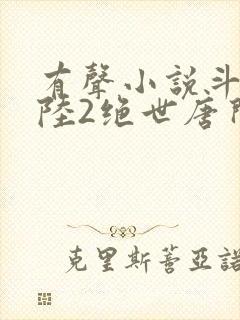 有聲小説斗
陸2绝世唐門
克里斯蒂亞諾